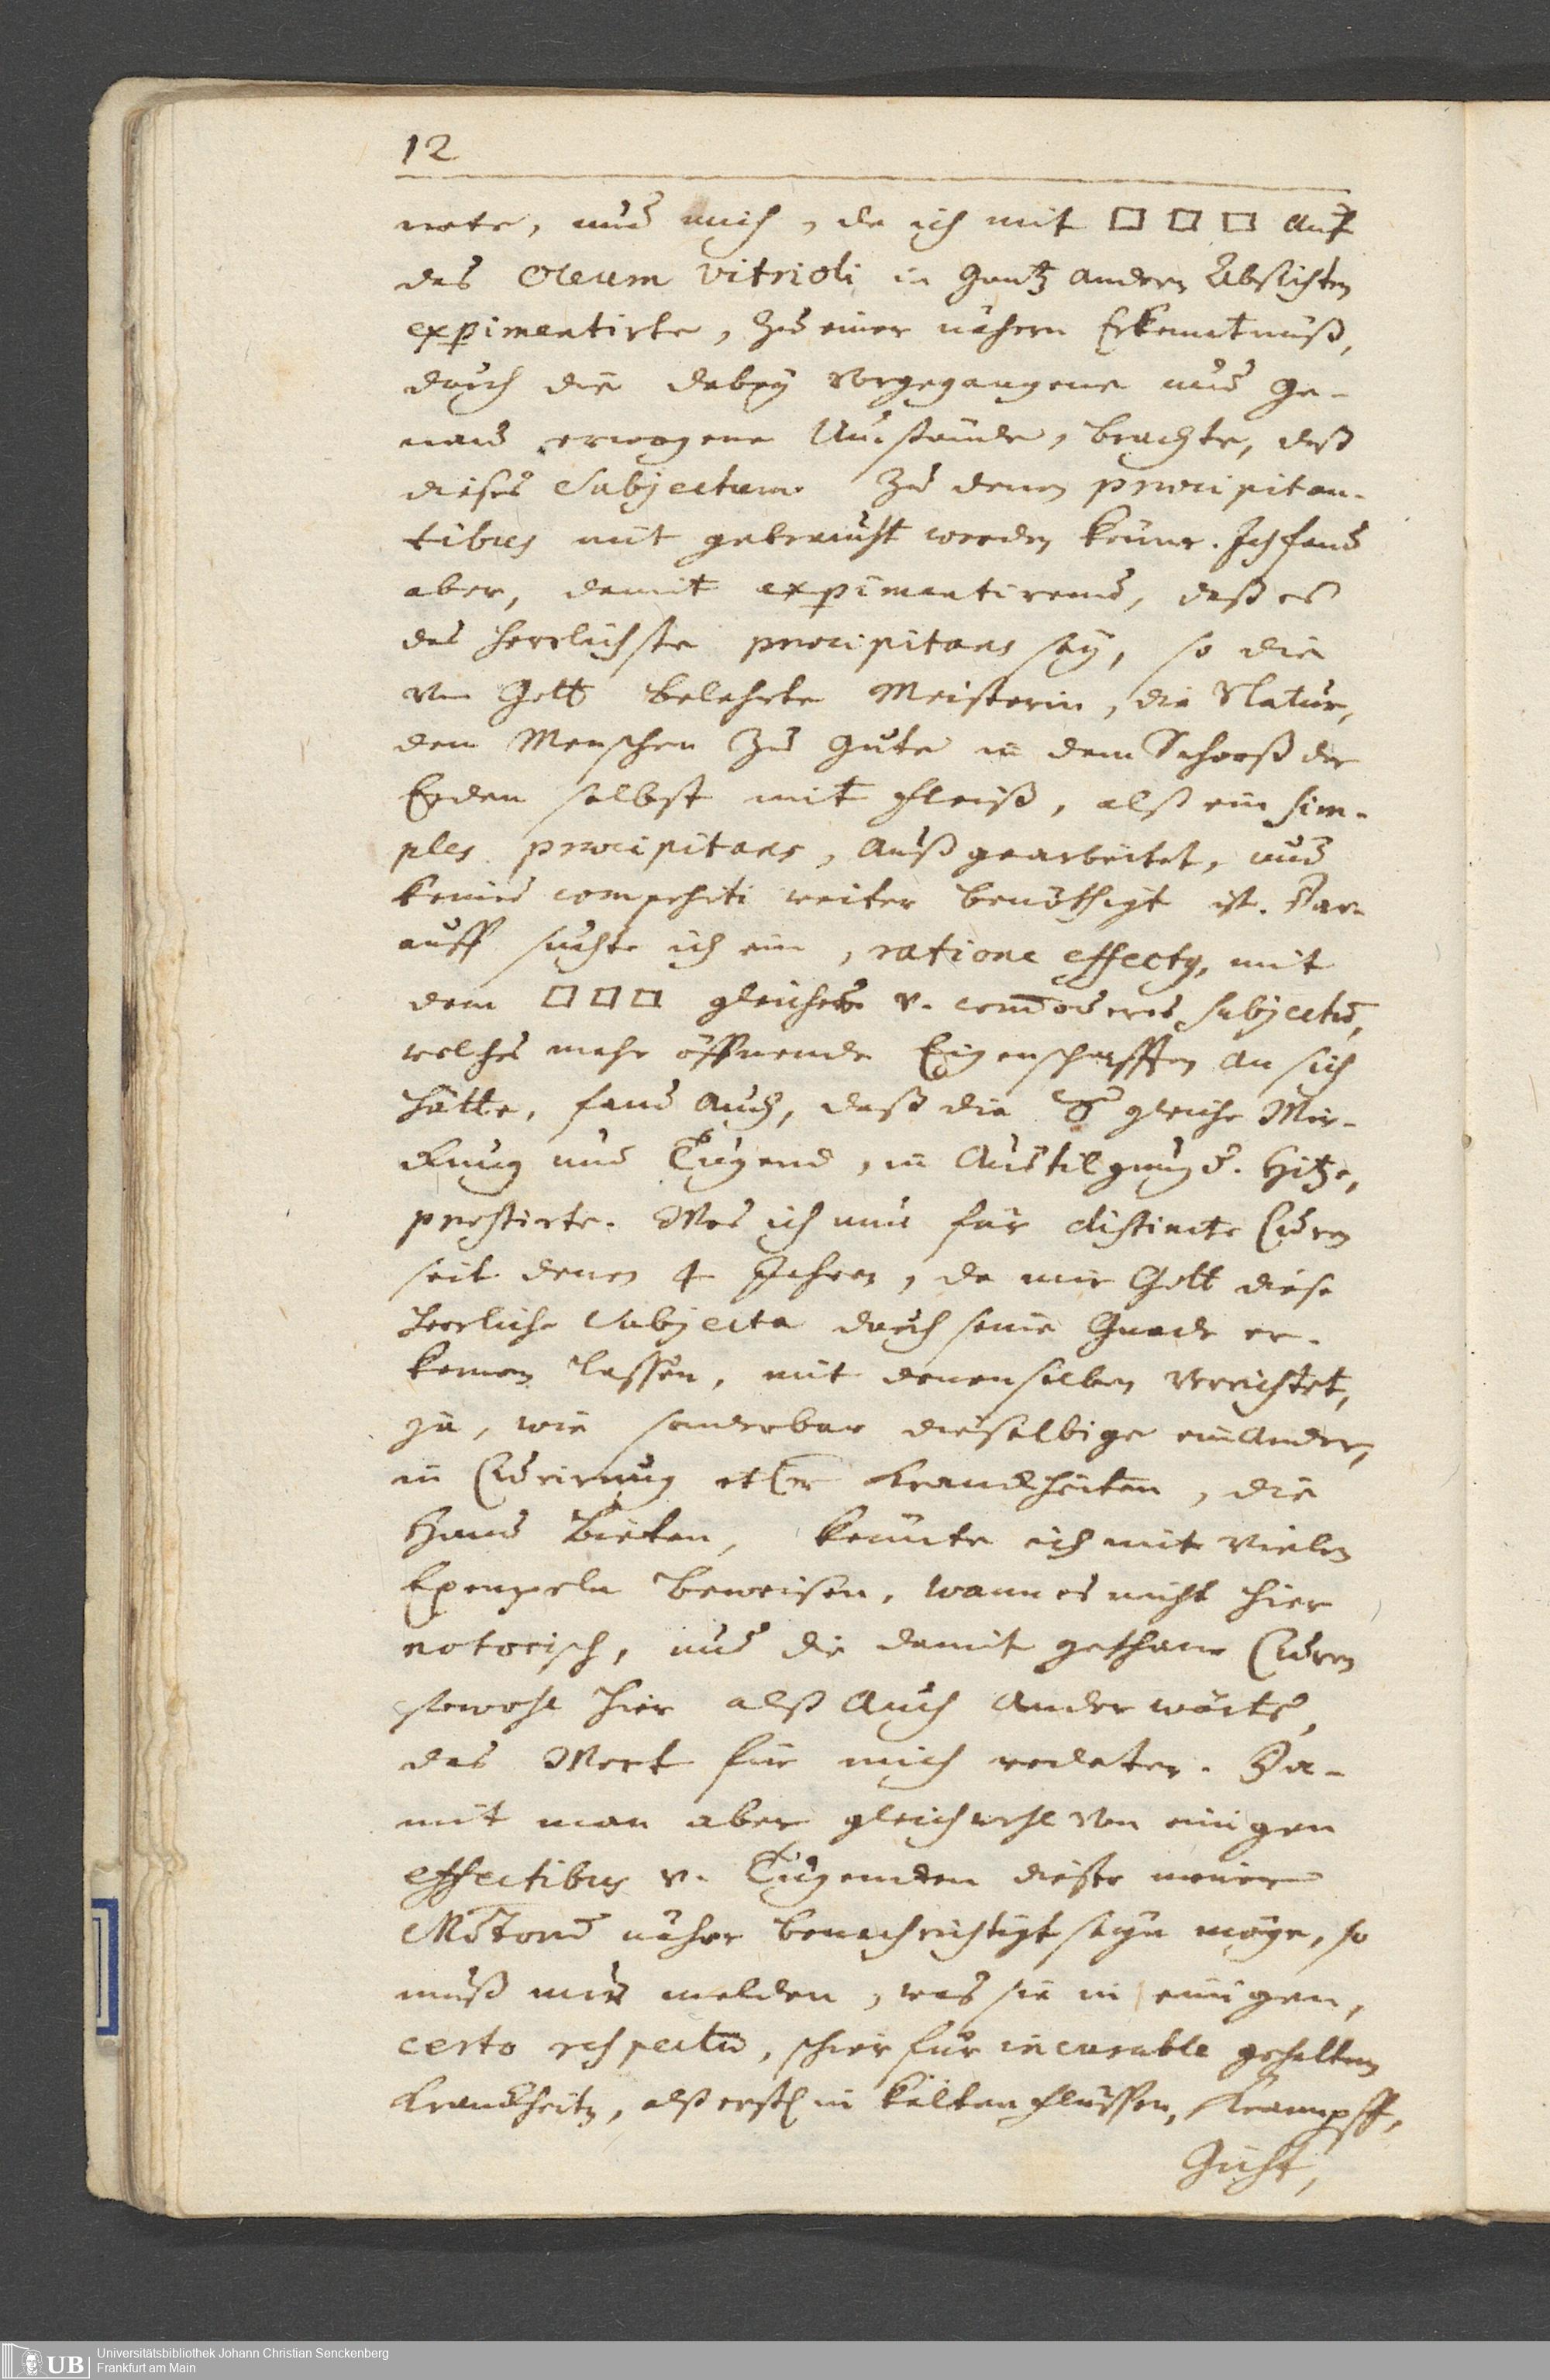 12
nete, und mich, da ich mit □ □ □ auf
das Oleum Vitrioli in gantz andern Absichten
exp̱imentirte, zu einer nähern Erkenntnuß,
durch die dabey vorgegangene und ge-
nau erwogene Umstände, brachte, daß
dieses Subjectum zu denen præcipitan-
tibus mit gebraucht werden könne. Ich fand
aber, damit exp̱imentirend, daß es
das herrlichste præcipitans sey, so die
von Gott belehrte Meisterin, die Natur,
dem Menschen zu gute in dem Schooß der
Erden selbst mit Fleiß, alß ein sim-
ples præcipitans, außgearbeitet, und
keines compositi weiter benöthigt ist. Dar-
auff suchte ich ein, ratione effectus, mit
dem □ □ □ gleiches v. com̄oderes Subjectū,
welches mehr öffnende Eigenschafften an sich
hätte, fand auch, daß die gleiche Wür-
ckung und Tugend, in Austilgung d. Hitze,
præstirte. Was ich nun für distincte Curen
seit denen 4 Jahren, da mir Gott diese
herrliche Subjecta durch seine Gnade er-
kennen lassen, mit denenselben verrichtet,
ja, wie sonderbar dieselbige einander,
in Curirung etler Kranckheiten, die
Hand bieten, könnte ich mit vielen
Exempeln beweisen, wann es nicht hier
notorisch, und die damit gethane Curen
sowohl hier alß auch anderwärts,
das Wort für mich redeten. Da-
mit man aber gleichwohl von einigen
effectibus v. Tugenden dieser meiner
näher benachrichtigt seyn möge, so
muß nur melden, was sie in einigen,
certo respectu, schier für incurable gehalten
Kranckheitn, alß erstl. in kalten Flüssen, Krampff,
Gicht,
Universitätsbibliothek Johann Christian Senckenberg
UB Frankfurt am Main